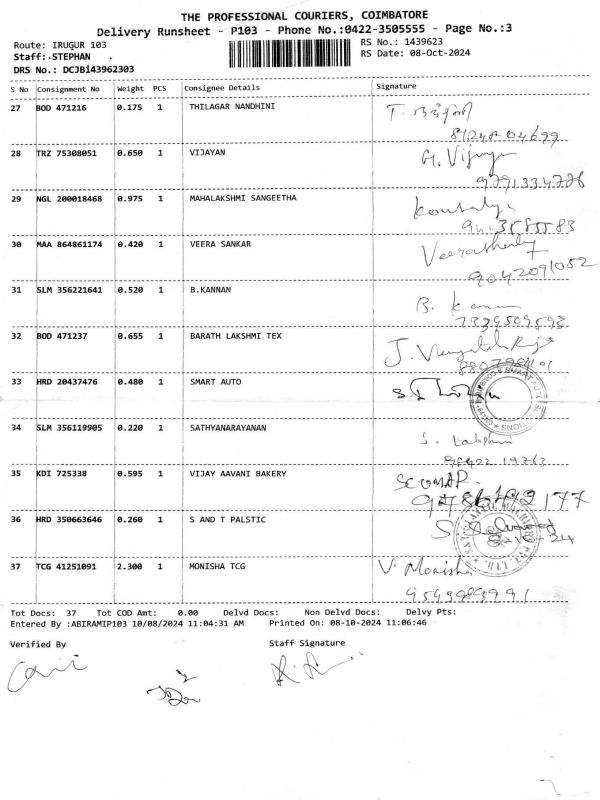 THE PROFESSIONAL COURIERS, COIMBATORE
Delivery Runsheet - P103 - Phone No.:0422-3505555 - Page No.:3
Route: IRUGUR 103 RS No.: 1439623
Staff: STEPHAN RS Date: 08-Oct-2024
DRS No.: DCJBI43962303
S No Consignment No Weight PCS Consignee Details Signature
27 BOD 471216 0.175 1 THILAGAR NANDHINI
28 TRZ 75308051 0.650 1 VIJAYAN G. Vijaya
29 NGL 200018468 0.975 1 MAHALAKSHMI SANGEETHA
30 MAA 864861174 0.420 1 VEERA SANKAR
9042091052
31 SLM 356221641 0.520 1 B.KANNAN B.
7339509593
32 BOD 471237 0.655 1 BARATH LAKSHMI TEX J.
33 HRD 20437476 0.480 1 SMART AUTO SMART AUTO
34 SLM 356119905 0.220 1 SATHYANARAYANAN S. Lakshmi
35 KDI 725338 0.595 1 VIJAY AAVANI BAKERY
36 HRD 350663646 0.260 1 S AND T PALSTIC
37 TCG 41251091 2.300 1 MONISHA TCG V Monisha
Tot Docs: 37 Tot COD Amt: 0.00 Delvd Docs: Non Delvd Docs: Delvy Pts:
Entered By :ABIRAMIP103 10/08/2024 11:04:31 AM Printed On: 08-10-2024 11:06:46
Verified By Staff Signature